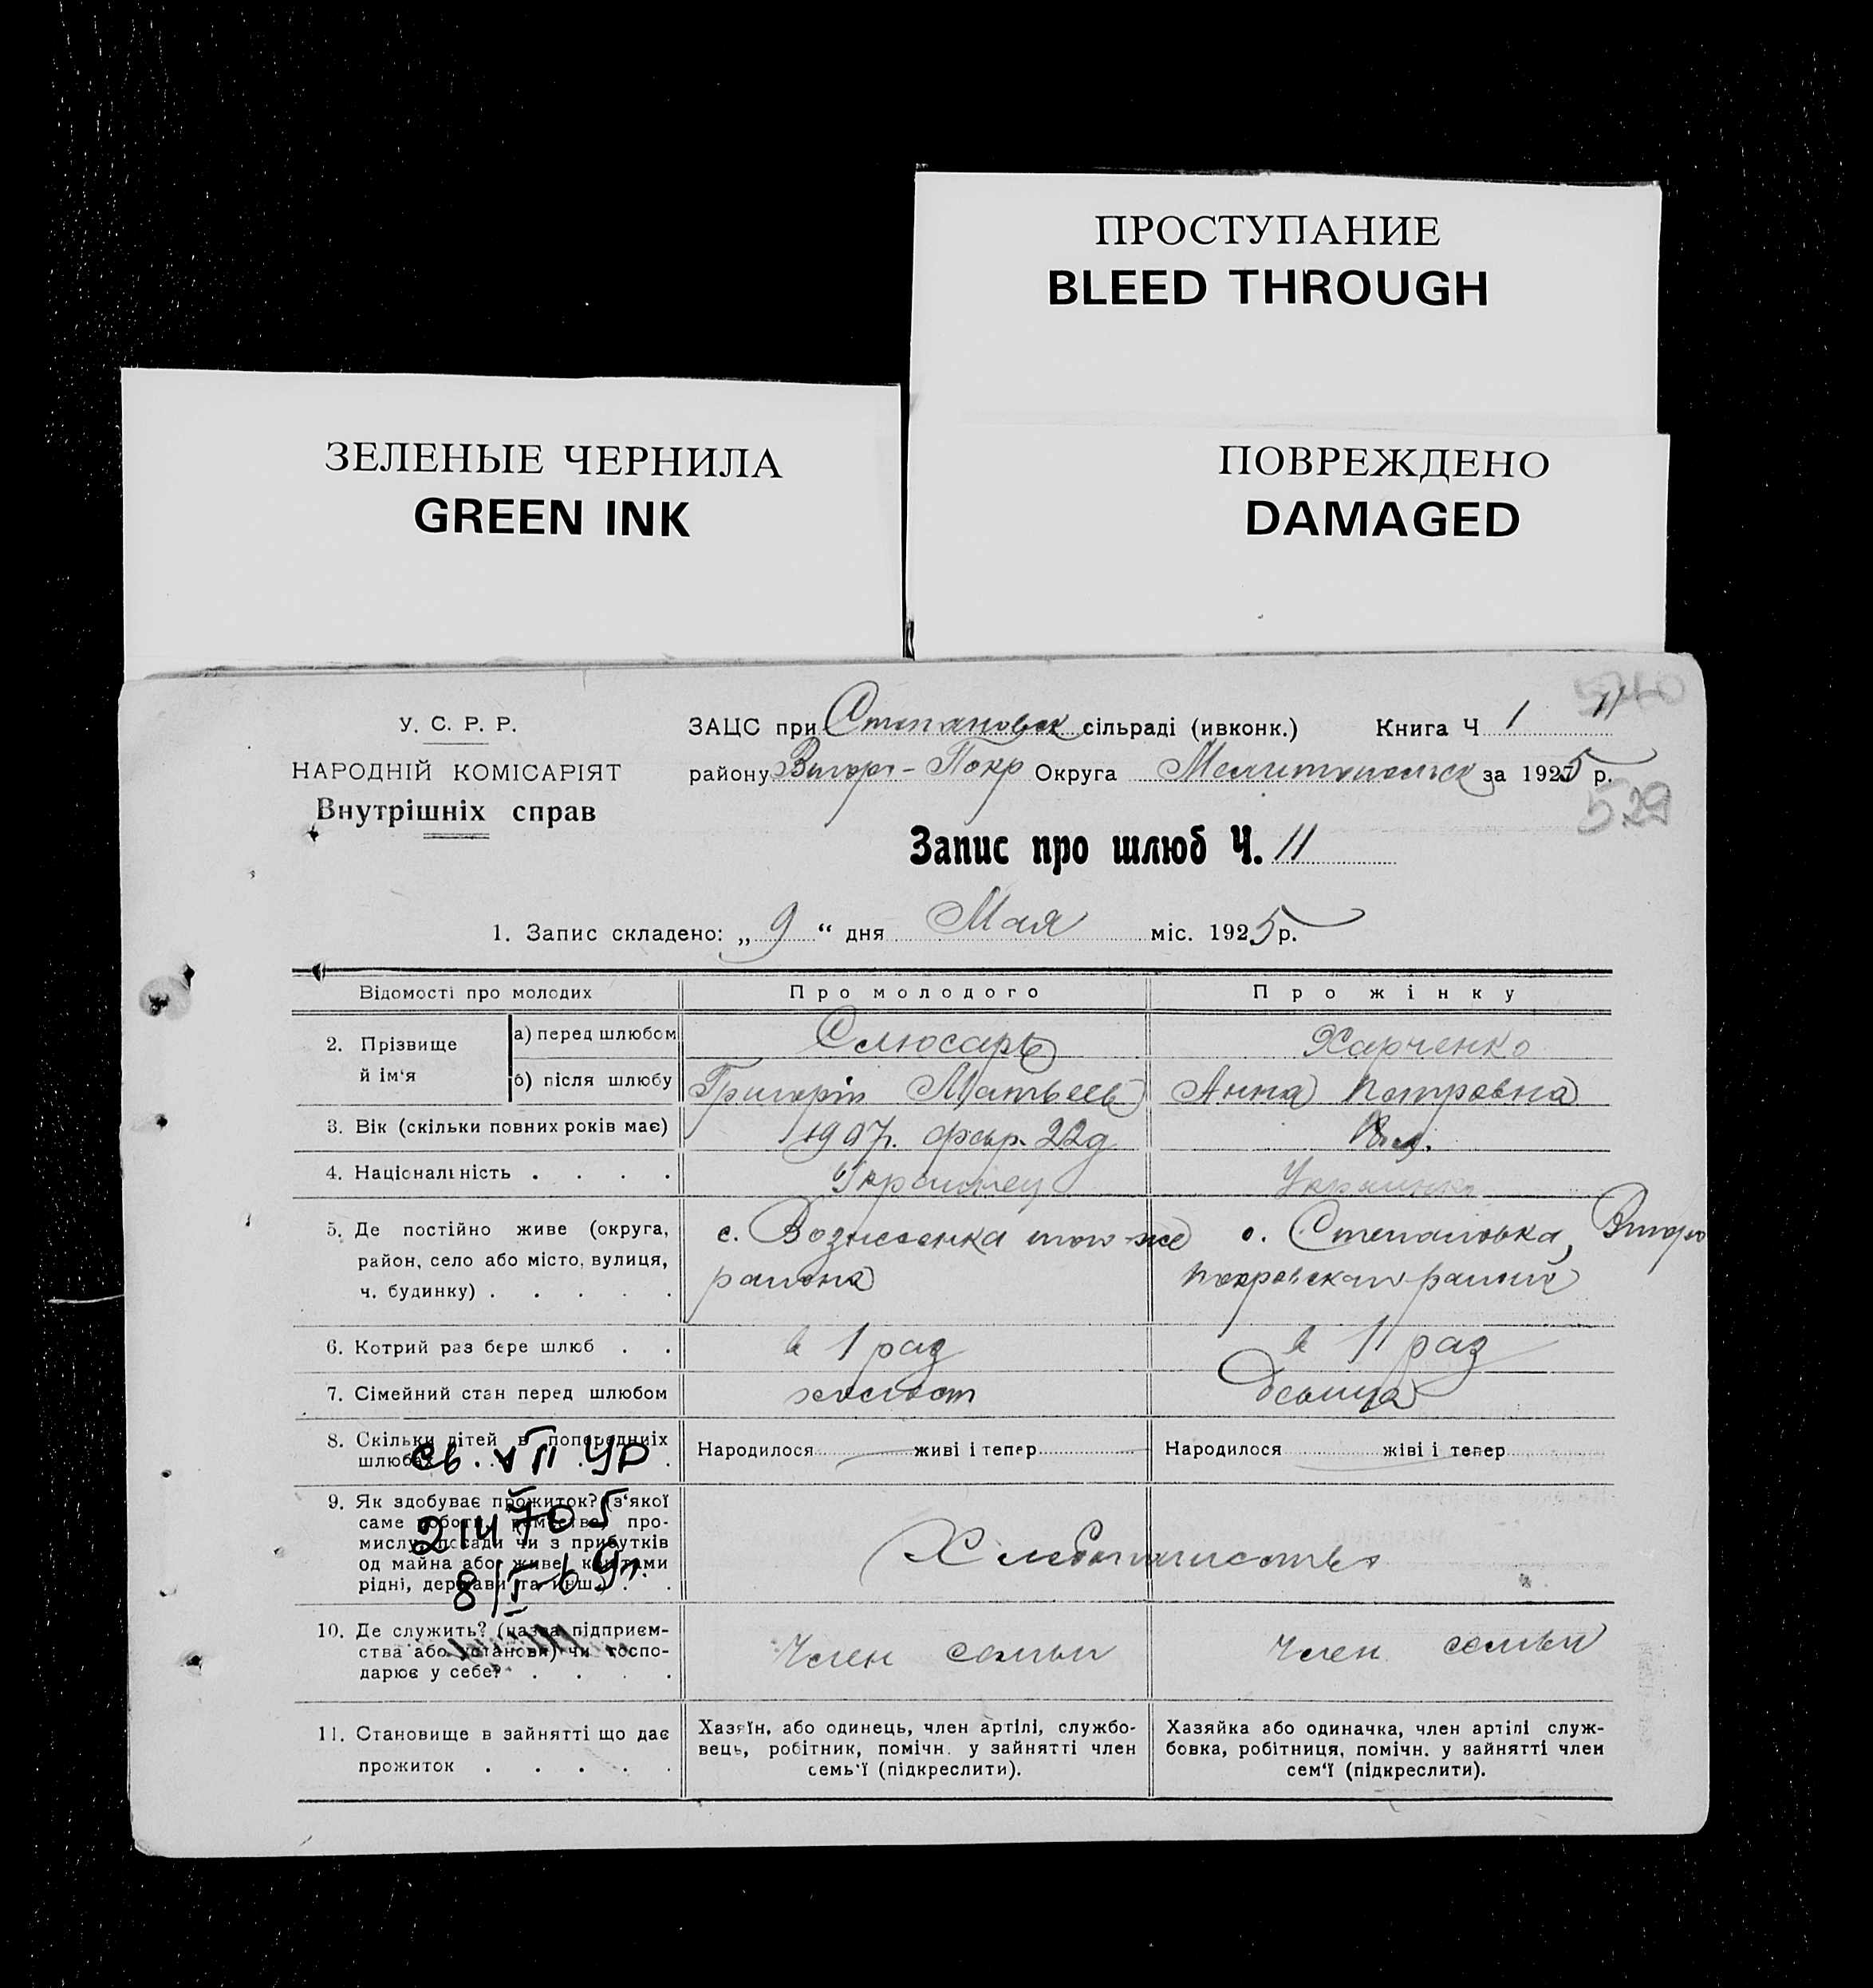 ПРОСТУПАНИЕ
BLEED THROUGH
ЗЕЛЕНЫЕ ЧЕРНИЛА
GREEN INK
ПОВРЕЖДЕНО
DAMAGED
540
У. С. Р. Р.
НАРОДНІЙ КОМІСАРІЯТ
Внутрішніх справ
ЗАЦС при Степановск сільраді (ивконк.) Книга Ч 1 11
району Второ-Покр Округа Мелитопольск за 1925 р.
529
Запис про шлюб Ч. 11
1. Запис складено: „ 9 “ дня Мая міс. 1925 р.
Відомості про молодих Про молодого Про жінку
2. Прізвище й ім‘я
а) перед шлюбом Слюсарь Харченко
б) після шлюбу Григорій Матвеев Анна Петровна
3. Вік (скільки повних років має) 1907г. февр. 22д
4. Національність . . . . Украинец Украинка
5. Де постійно живе (округа, район, село або місто, вулиця, ч. будинку) . . . . .
с. Вознесенка того-же
района
с. Степановка, Второ
покровскаго района
6. Котрий раз бере шлюб . . в 1 раз в 1 раз
7. Сімейний стан перед шлюбом холост девица
8. Скільки дітей в попередніх шлюбах
Народилося живі і тепер Народилося жіві і тепер
св. VП УР
9. Як здобуває прожиток? (з‘якої
саме роботи, ремества, про-
мислу, посади чи з прибутків
од майна або живе коштами
рідні, держави та инш.) .
Хлебопашество
214705
8/I-69г.
10. Де служить? (назва підприєм-
ства або установи) чи госпо-
дарює у себе? . . . .
Член семьи Член семьи
11. Становище в зайнятті що дає
прожиток . . . . .
Хазяїн, або одинець, член артілі, службо-
вець, робітник, помічн. у зайнятті член
семь‘ї (підкреслити).
Хазяйка або одиначка, член артілі служ-
бовка, робітниця, помічн. у зайнятті член
сем‘ї (підкреслити).